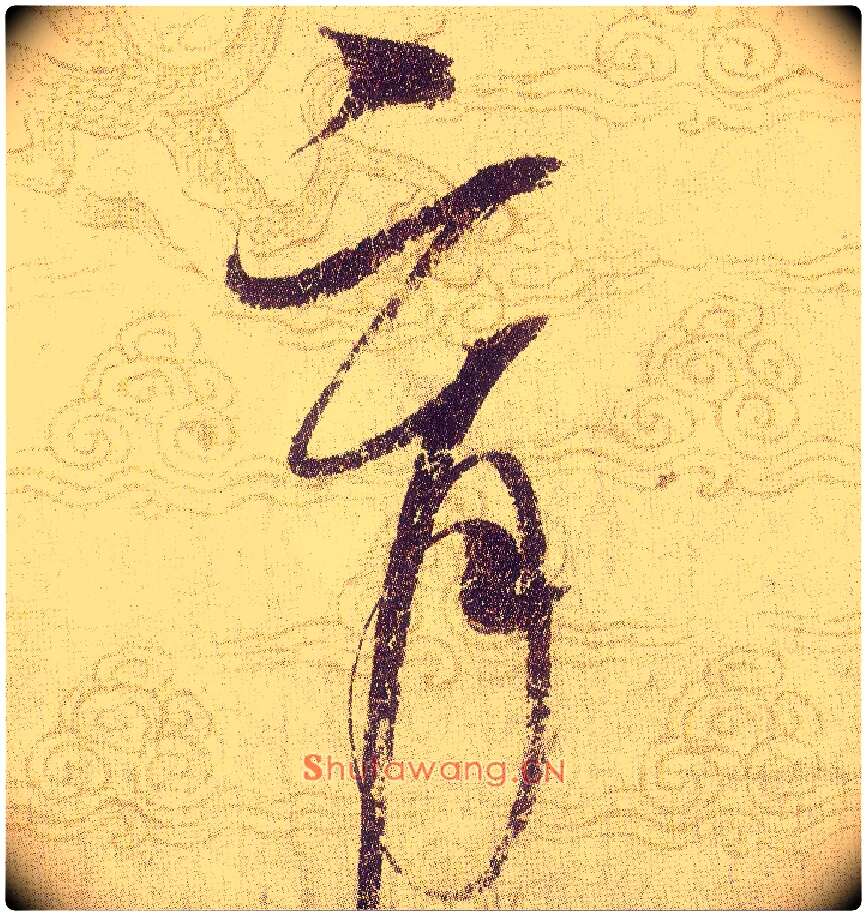 育
Shufawang.CN